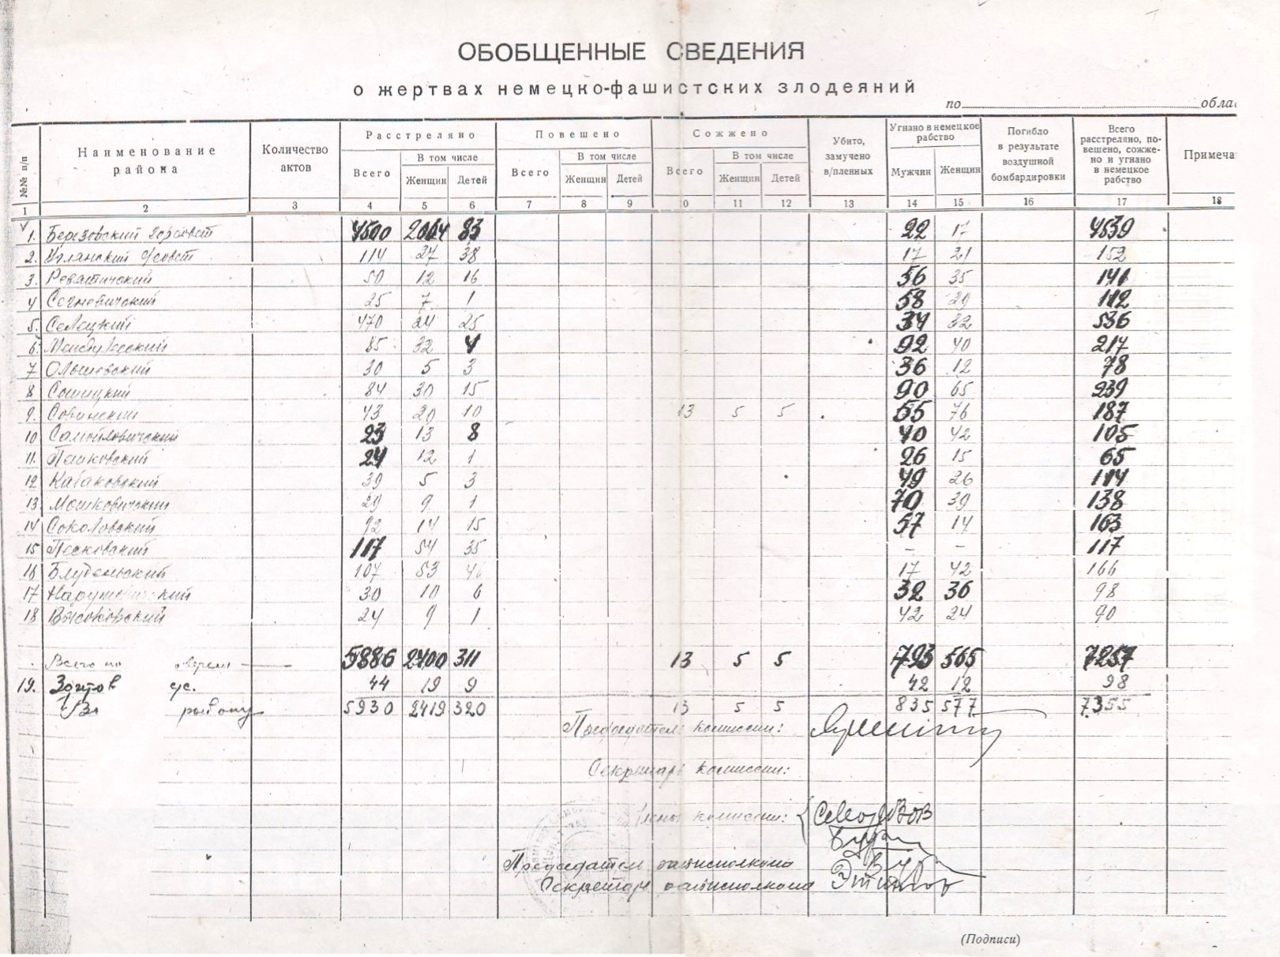 ОБОБЩЕННЫЕ СВЕДЕНИЯ
о жертвах немецко-фашистских злодеяний
по обла
№№ п/п Наименование района Количество актов Расстреляно Повешено Сожжено Убито, замучено в/пленных Угнано в немецкое рабство Погибло в результате воздушной бомбардировки Всего расстреляно, повешено, сожжено и угнано в немецкое рабство Примеча
Всего В том числе Женщин Детей Всего В том числе Женщин Детей Всего В том числе Женщин Детей Мужчин Женщин
1 2 3 4 5 6 7 8 9 10 11 12 13 14 15 16 17 18
1. Березовский горсовет 4500 2064 83 22 17 4539
2. 114 27 38 17 21 152
3. Ревятичский 50 12 16 56 35 141
4 Сегневичский 25 7 1 58 29 112
5. Селецкий 470 24 25 34 32 536
6. Междулесский 85 32 4 92 40 217
7 Ольшевский 30 5 3 36 12 78
8 84 30 15 90 65 239
9. 43 20 10 13 5 5 55 76 187
10 Самойловичский 23 13 8 40 42 105
11. Пешковский 24 12 1 26 15 65
12 Кабаковский 39 5 3 49 26 114
13. Мошковичский 29 9 1 70 39 138
14 Соколовский 92 14 15 57 14 163
15 Песковский 117 54 35 – – 117
16 Блуденьский 107 53 17 42 166
17 30 10 6 32 36 98
18 Высоковский 24 9 1 42 24 90
Всего по 5886 2400 311 13 5 5 793 565 7257
19. с/с. 44 19 9 42 12 98
району 5930 2419 320 13 5 5 835 577 7355
Председатель комиссии:
Секретарь комиссии:
Члены комиссии:
Председатель райисполкома
Секретарь райисполкома
(Подписи)